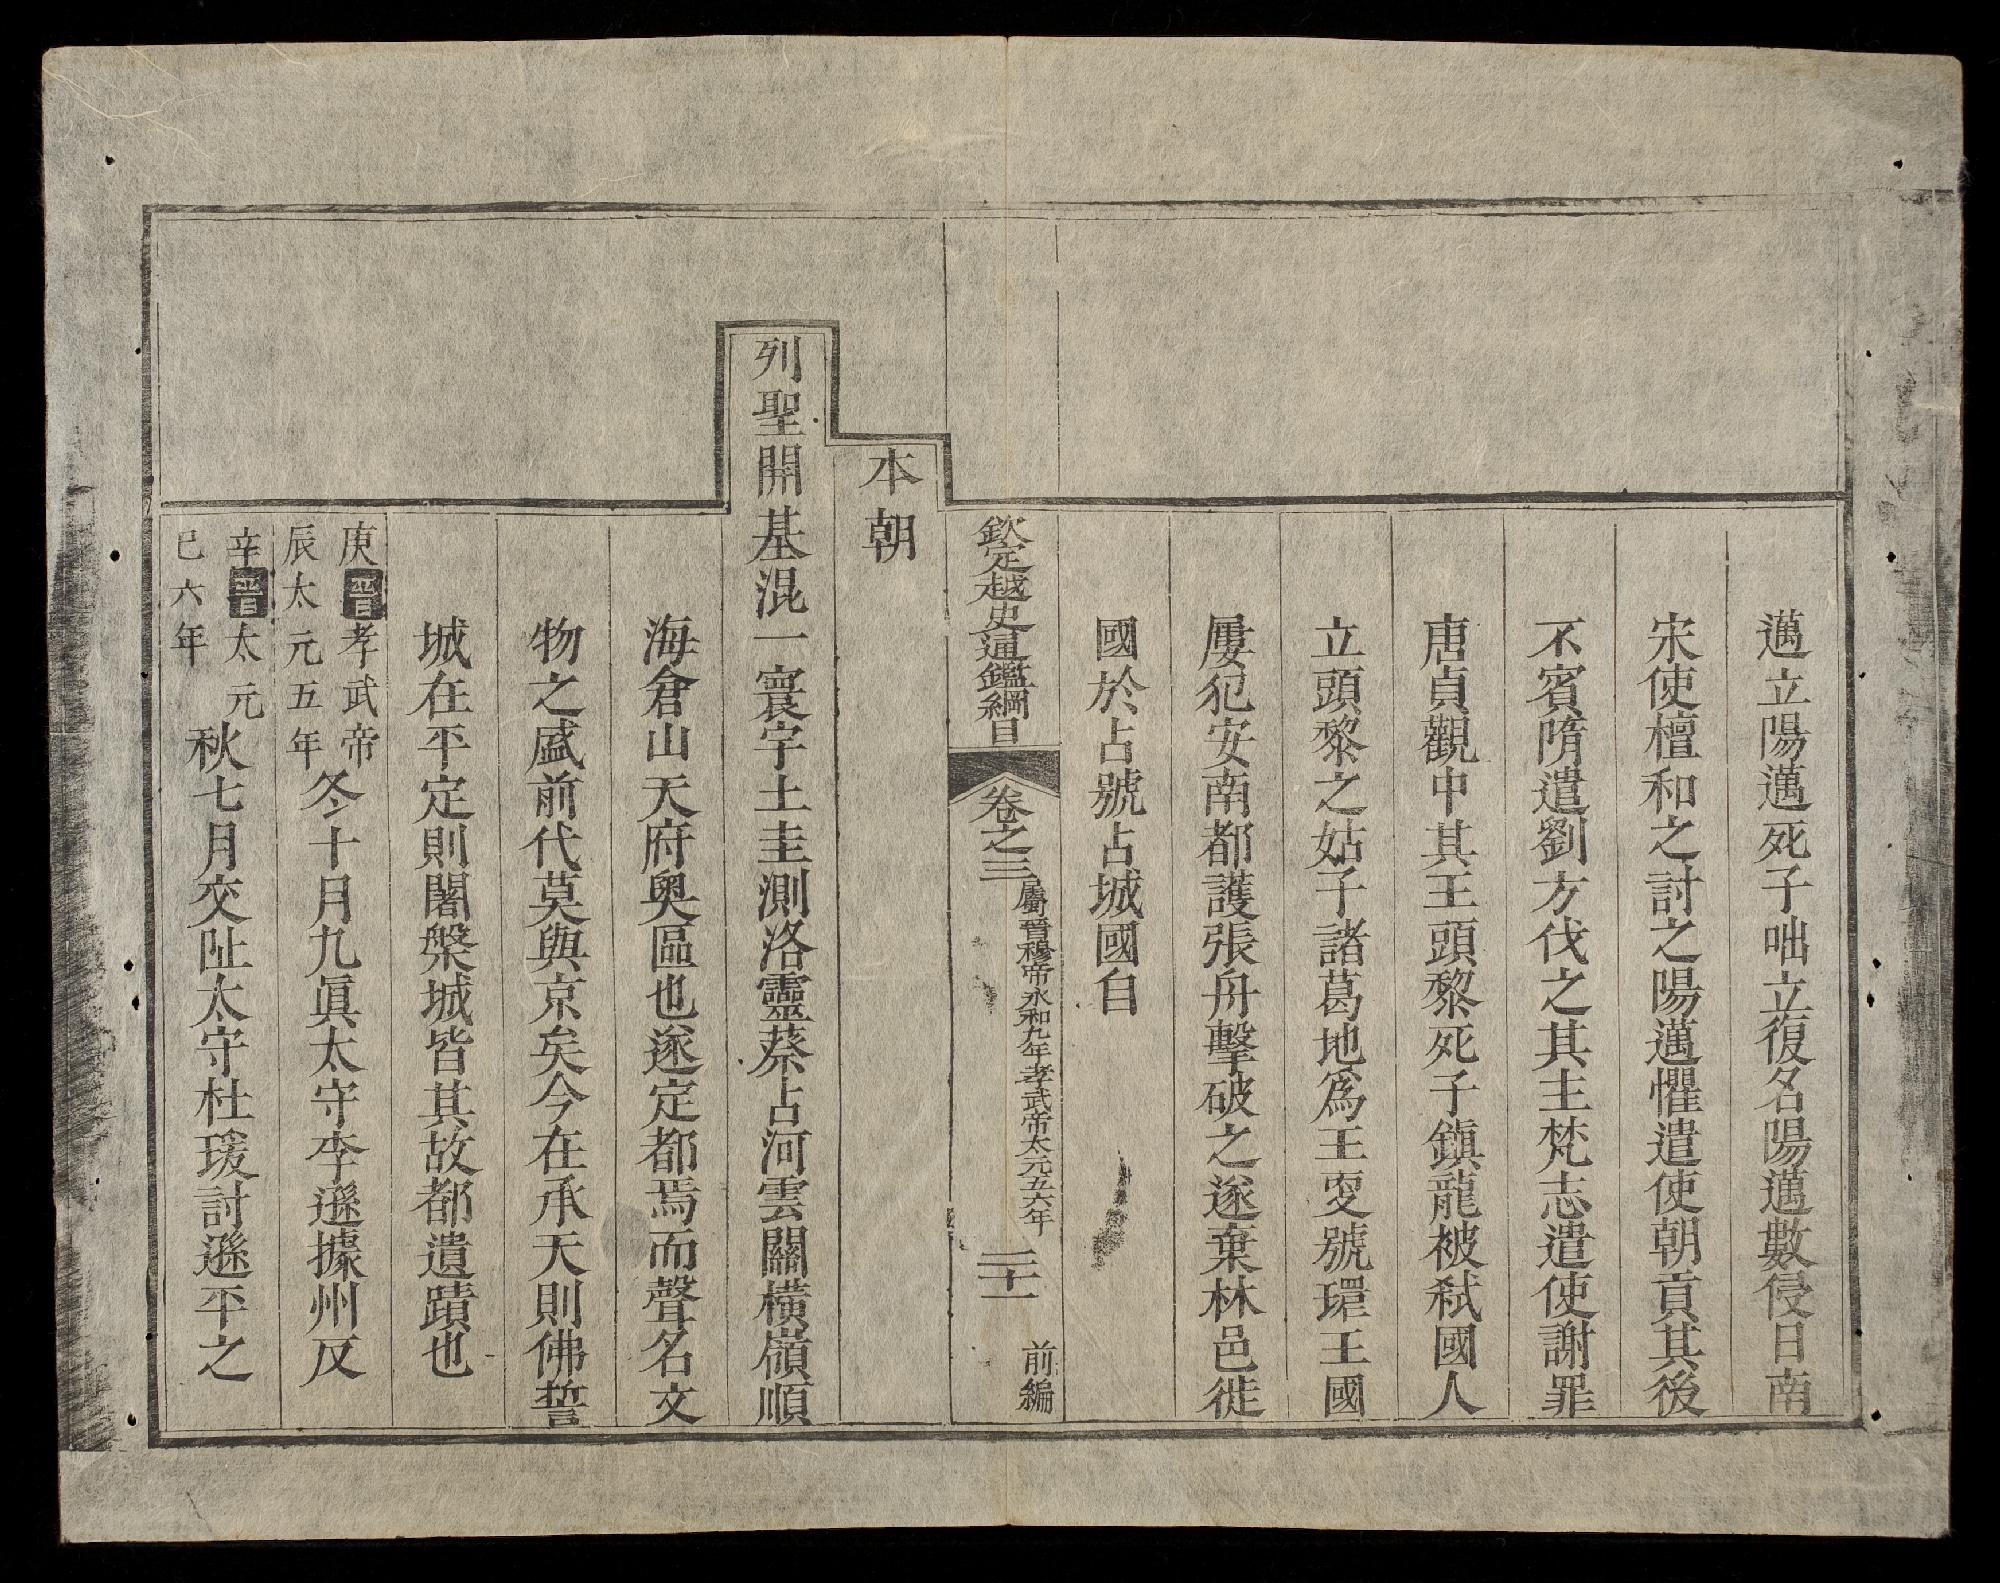 邁立陽邁死子咄立復名陽邁數侵日南
宋使檀和之討之陽邁懼遣使朝貢其後
不賓隋遣劉方伐之其主梵志遣使謝罪
唐貞觀中其王頭黎死子鎮龍被弑國人
立頭黎之姑子諸葛地爲王更號環王國
屢犯安南都護張舟擊破之遂棄林邑徙
國於占號占城國自
欽定越史通鑑綱目 卷之三 屬晉穆帝永和九年孝武帝太元五六年 二十一 前編
本朝
列聖開基混一寰宇土圭測洛靈蔡占河雲關橫嶺順
海倉山天府奧區也遂定都焉而聲名文
物之盛前代莫與京矣今在承天則佛誓
城在平定則闍槃城皆其故都遺蹟也
庚辰晉孝武帝太元五年冬十月九眞太守李遜據州反
辛巳晉太元六年秋七月交阯太守杜瑗討遜平之